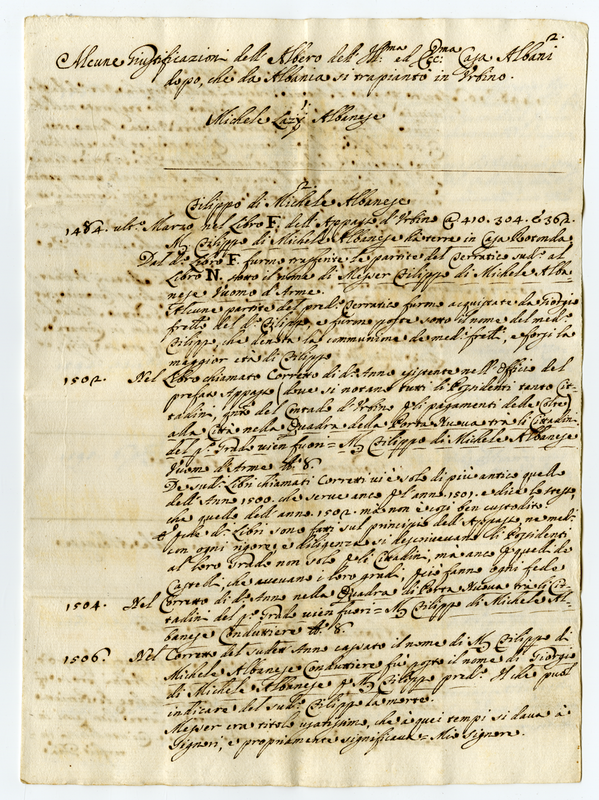 2.
Alcune Giustificazioni dell'Albero dell'Ill:ma ed Ecc:ma Casa Albani
dopo, che da Albania si trapiantò in Urbino.
1.
Michele Lazy Albanese
2.
Filippo di Michele Albanese
1484. ult.o Marzo nel Libro F. dell'Appasso d'Urbino @ 410. 304. è 362.
M. Filippo di Michele Albanese hà terra in Casa Rotonda
Dal d.o Libro F. furno trasferite le partite del Terratico sud.o al
Libro N. sotto il nome di Messer Filippo di Michele Alba-
nese Vuomo d'Arme.
Alcune partite del pred.o Terratico furno acquistate da Giorgio
frēllo del d.o Filippo, e furno poste sotto il nome del med.o
Filippo, che denota la communione de med.i frēlli, e forsi la
maggior età di Filippo
1502. Nel Libro chiamato Corretto di d.o Anno esistente nell'Officio del
prefato Appasso (dove si notano tutti li Possidenti tanto Cit-
tadini, q̃nto del Contado d'Urbino p̃ li pagamenti delle Colte)
alla Città nella Quadra della Porta Nuova trà li Cittadini
del p.o Grado vien fuori = M. Filippo di Michele Albanese
Vuomo d'Arme 8.
De sud.i Libri chiamati Corretti vi è solo di più antico quello
dell'Anno 1500. che serve anco p̃ l'anno 1501. e dice lo stesso,
che quello dell'anno 1502. ma non è così ben custodito.
E p̃che d.i Libri sono fatti sul principio dell'Appasso, ne med.i
con ogni rigore, e diligenza si descrivevano li Possidenti
al loro Grado non solo p̃ li Cittadini, ma anco p̃ quelli de
Castelli, che avevano i loro gradi, e ciò fanno ogni fede
1504. Nel Corretto di d.o Anno nella Quadra di Porta Nuova trà li Cit-
tadini del p.o Grado vien fuori = M. Filippo di Michele Al-
banese Conduttiere 8.
1506. Nel Corretto del sudett.o Anno cassato il nome di M. Filippo di
Michele Albanese Conduttiere fù posto il nome di Giorgio
di Michele Albanese p̃ M. Filippo pred.o Il chè può
indicare del sud.o Filippo la morte.
Messer era titolo usatissimo, che à quei tempi si dava à
Signori, e propriamente significava = Mio Signore.